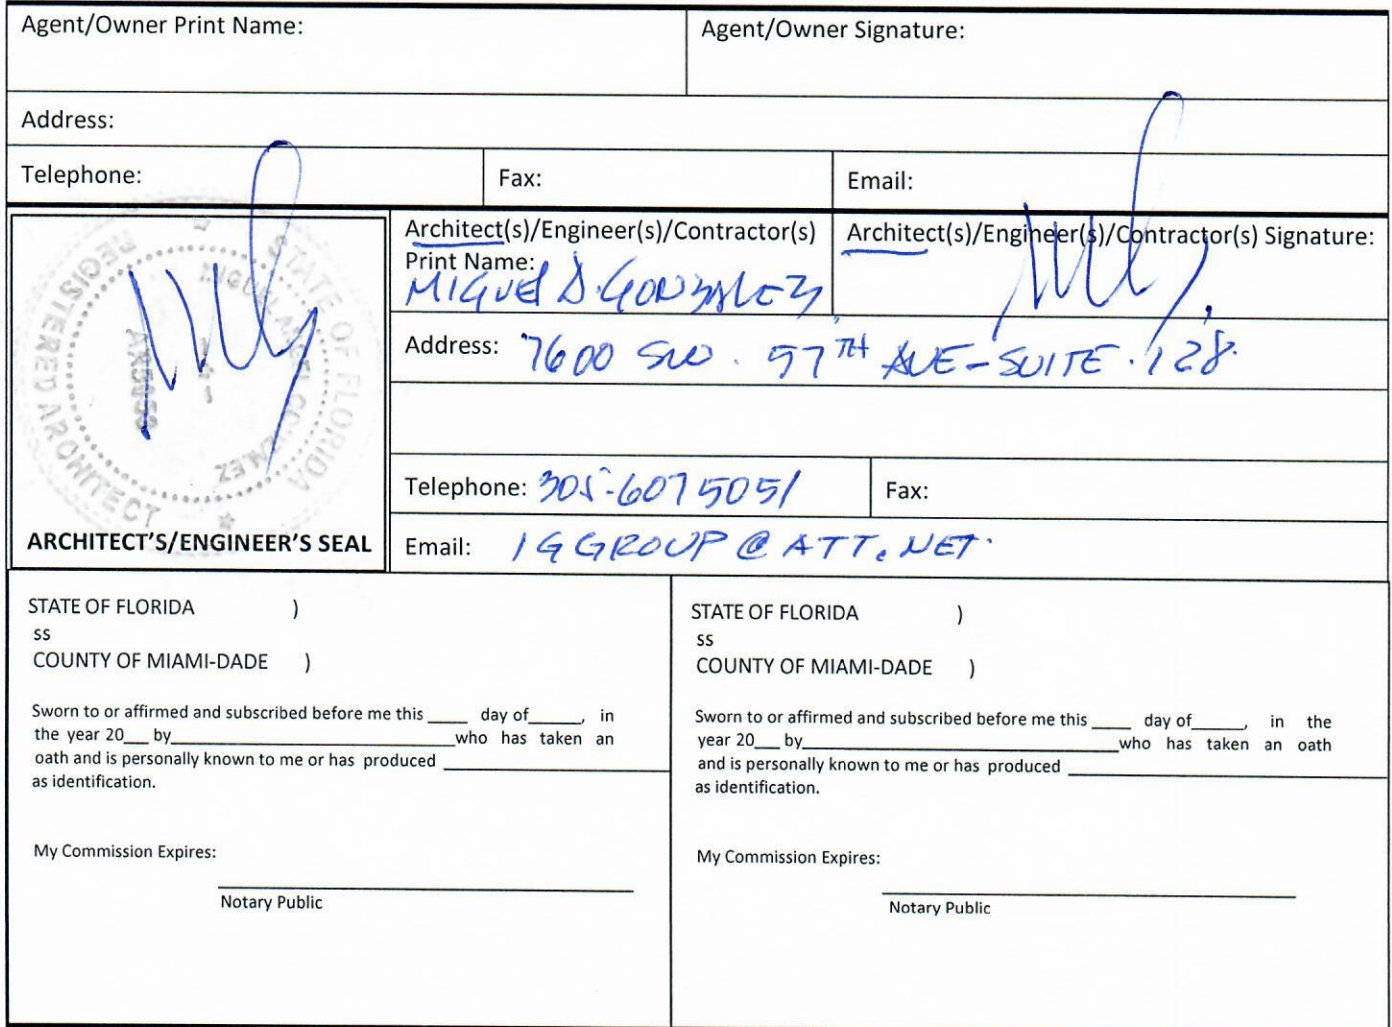 Agent/Owner Print Name:
Agent/Owner Signature:
Address:
Telephone:
Fax:
Email:
STATE OF FLORIDA
REGISTERED ARCHITECT
MIGUEL ANGEL GONZALEZ
ARCHITECT'S/ENGINEER'S SEAL
Architect(s)/Engineer(s)/Contractor(s)
Print Name:
MIGUEL A. GONZALEZ
Architect(s)/Engineer(s)/Contractor(s) Signature:
Address: 7600 SW. 57TH AVE-SUITE. 128.
Telephone: 305-607 5051
Fax:
Email: IGGROUP@ATT.NET.
STATE OF FLORIDA )
ss
COUNTY OF MIAMI-DADE )
Sworn to or affirmed and subscribed before me this ____ day of_____, in
the year 20__ by__________________________who has taken an
oath and is personally known to me or has produced ____________________
as identification.
My Commission Expires:
Notary Public
STATE OF FLORIDA )
ss
COUNTY OF MIAMI-DADE )
Sworn to or affirmed and subscribed before me this ____ day of_____, in the
year 20__ by_____________________________who has taken an oath
and is personally known to me or has produced ____________________
as identification.
My Commission Expires:
Notary Public